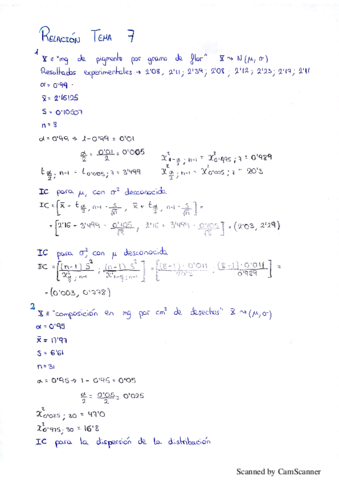 RELACIÓN TEMA 7
1
X ≡ "mg de pigmento por gramo de flor" X → N(μ, σ)
Resultados experimentales → 2'08, 2'11; 2'39; 2'08, 2'12; 2'23; 2'17; 2'11
α = 0'99
x̄ = 2'16125
S = 0'10507
n = 8
α = 0'99 → 1 - 0'99 = 0'01
α/2 = 0'01/2 = 0'005
χ²1-α/2, n-1 = χ²0'995; 7 = 0'989
tα/2; n-1 = t0'005; 7 = 3'499 χ²α/2; n-1 = χ²0'005; 7 = 20'3
IC para μ, con σ² desconocida
IC = [x̄ - tα/2; n-1 · S/√n, x̄ + tα/2; n-1 · S/√n] =
= [2'16 - 3'499 · 0'105/√8, 2'16 + 3'499 · 0'105/√8] = (2'03, 2'29)
IC para σ², con μ desconocida
IC = [(n-1) S²/χ²α/2; n-1, (n-1) S²/χ²1-α/2; n-1] = [(8-1) · 0'011/20'3, (8-1) · 0'011/0'989] =
= (0'003, 0'778)
2
X ≡ "composición en mg por cm³ de desechos" X → (μ, σ)
α = 0'95
x̄ = 17'97
S = 6'61
n = 31
α = 0'95 → 1 - 0'95 = 0'05
α/2 = 0'05/2 = 0'025
χ²0'025; 30 = 47'0
χ²0'975; 30 = 16'8
IC para la dispersión de la distribución
Scanned by CamScanner